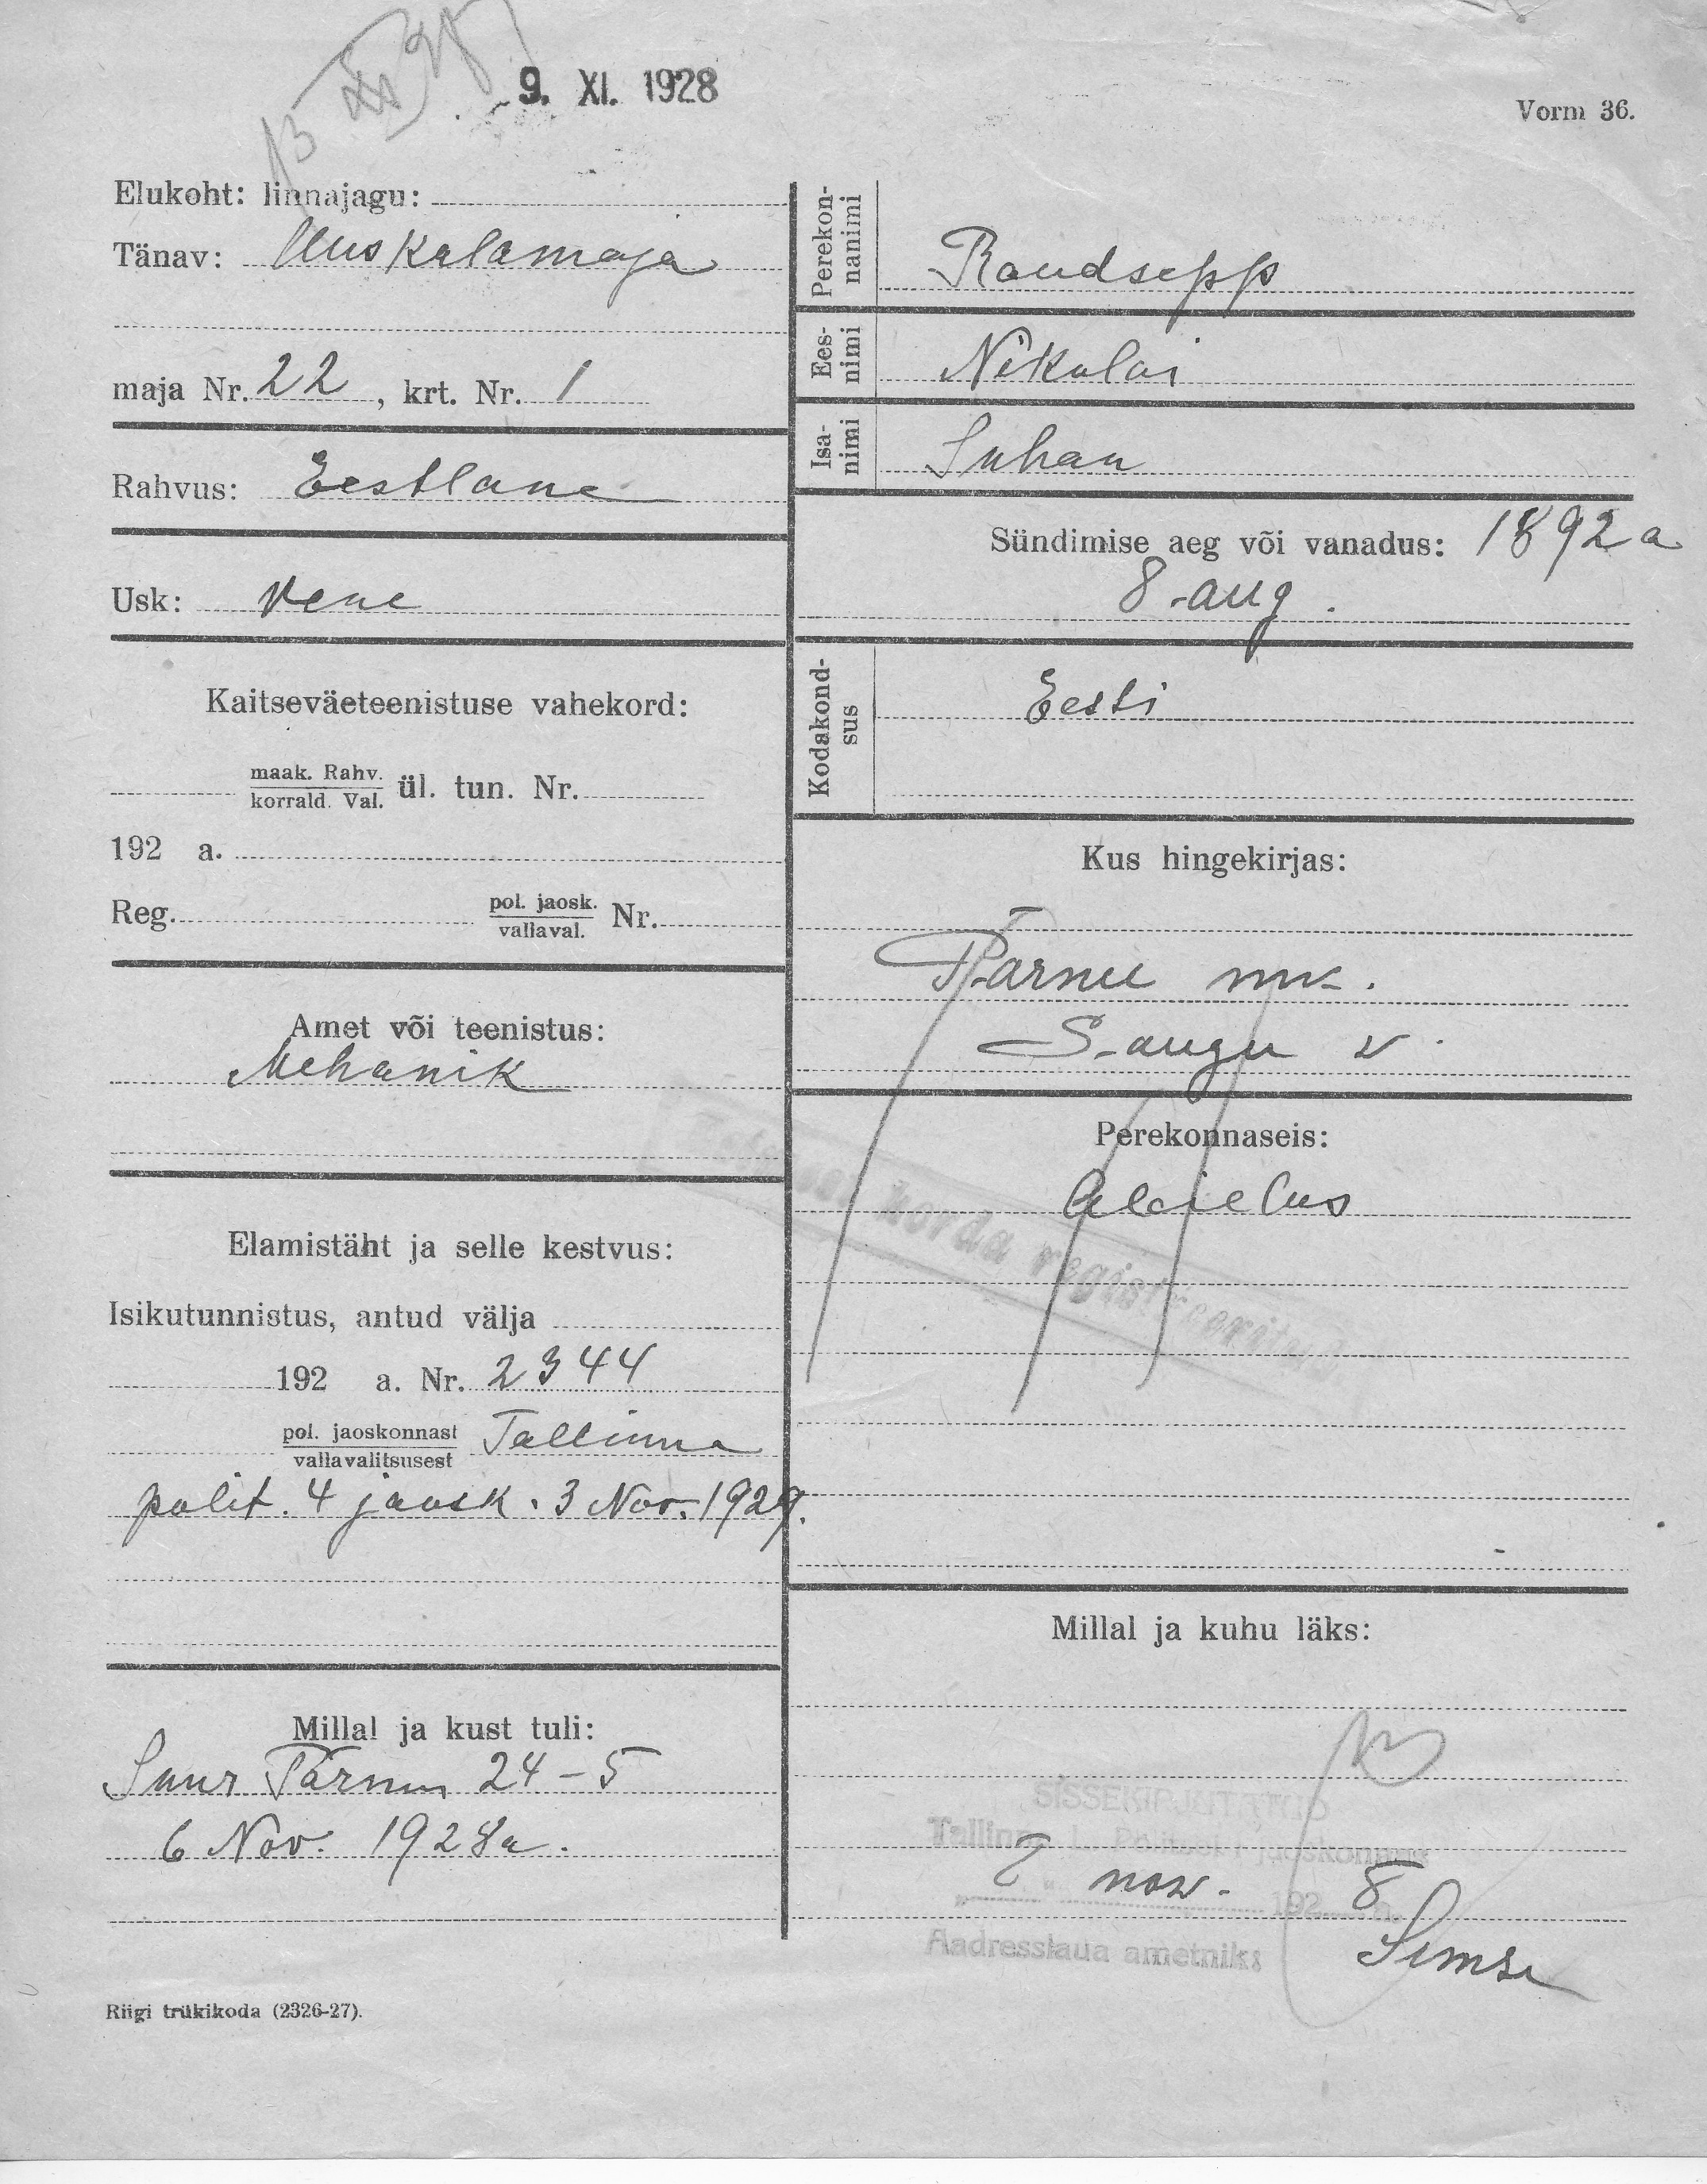 9. XI. 1928
Vorm 36.
Elukoht: linnajagu:
Tänav: Uus Kalamaja
maja Nr. 22, krt. Nr. 1
Rahvus: Eestlane
Usk: Vene
Kaitseväeteenistuse vahekord:
maak. Rahv.
korrald. Val. ül. tun. Nr.
192 a.
Reg. pol. jaosk.
vallaval. Nr.
Amet või teenistus:
Mehanik
Elamistäht ja selle kestvus:
Isikutunnistus, antud välja
192 a. Nr. 2344
pol. jaoskonnast
vallavalitsusest Tallinna
polit. 4 jaosk. 3 Nov. 1929.
Millal ja kust tuli:
Suur Pärnu 24-5
6 Nov. 1928a.
Riigi trükikoda (2326-27).
Perekon-
nanimi Raudsepp
Ees-
nimi Nikolai
Isa-
nimi Juhan
Sündimise aeg või vanadus: 1892 a
8. aug.
Kodakond-
sus Eesti
Kus hingekirjas:
Pärnu mk.
Saugu v.
Perekonnaseis:
Abielus
korda registreeritud
Millal ja kuhu läks:
SISSEKIRJUTATUD
Tallinna Politsei jaoskonnas
nov. 192 8 a.
Aadresslaua ametnik: